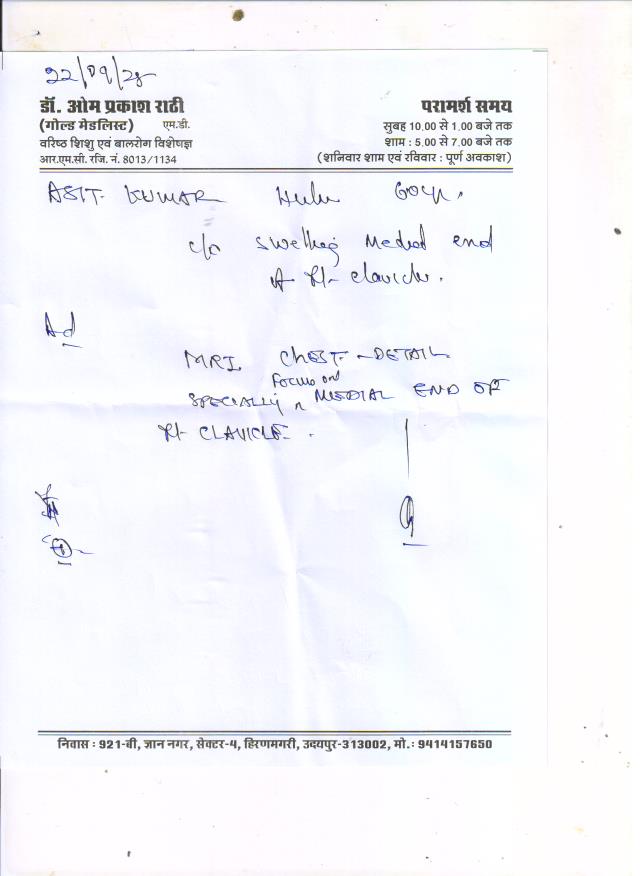 22/09/28
डॉ. ओम प्रकाश राठी
(गोल्ड मेडलिस्ट) एम.डी.
वरिष्ठ शिशु एवं बालरोग विशेषज्ञ
आर.एम.सी. रजि. नं. 8013/1134
परामर्श समय
सुबह 10.00 से 1.00 बजे तक
शाम : 5.00 से 7.00 बजे तक
(शनिवार शाम एवं रविवार : पूर्ण अवकाश)
ASIT KUMAR
c/o Swelling Medial end
of Rt- clavicle.
Ad
MRI CHEST - DETAIL
Focus on
SPECIALLY MEDIAL END OF
Rt- CLAVICLE.
निवास : 921-बी, ज्ञान नगर, सेक्टर-4, हिरणमगरी, उदयपुर-313002, मो.: 9414157650